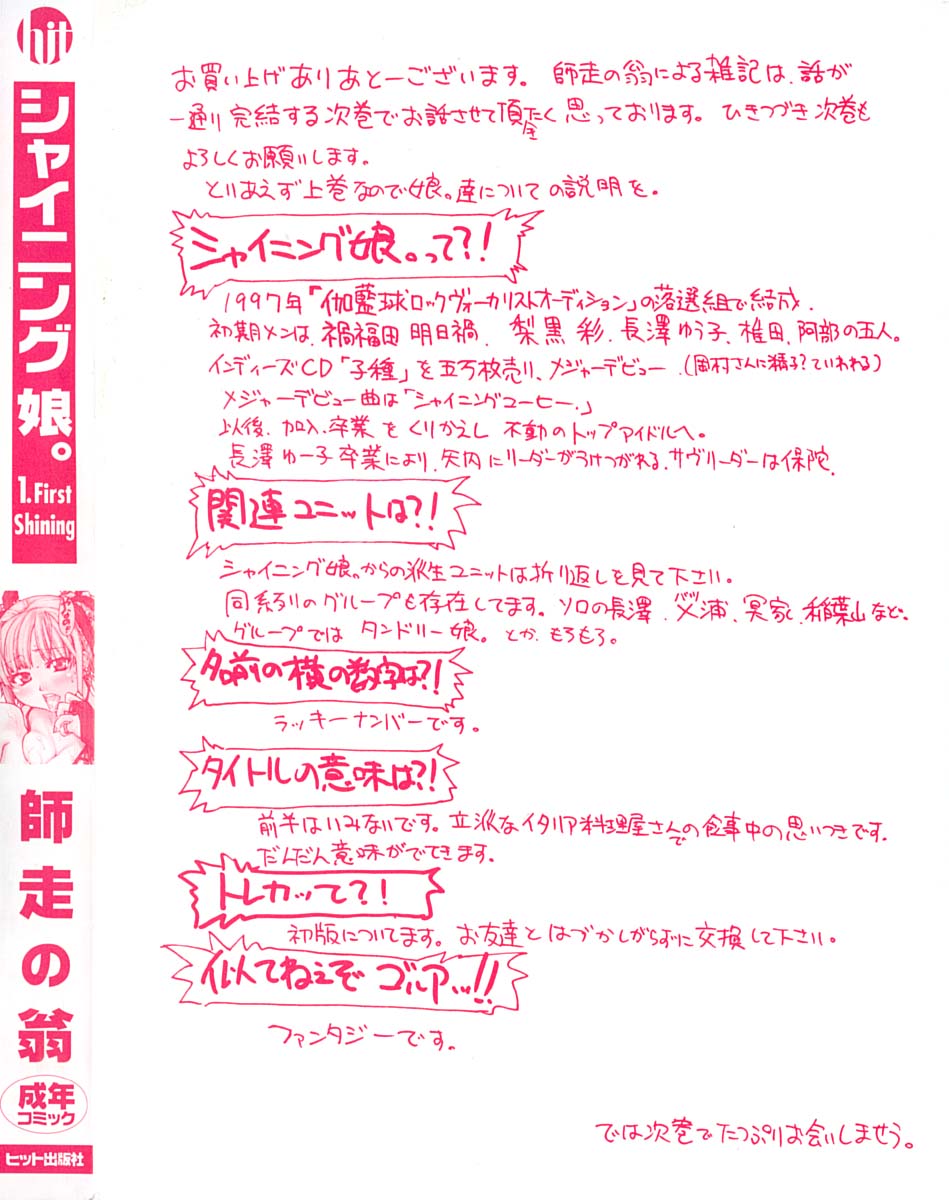 hit
シャイニング娘。
1. First
Shining
師走の翁
成年
コミック
ヒット出版社
お買い上げありあとーございます。 師走の翁による雑記は、話が
一通り完結する次巻でお話させて頂たく思っております。 ひきつづき次巻も
よろしくお願いします。
とりあえず上巻なので娘。達についての説明を。
シャイニング娘。って?!
1997年「伽藍球ロックヴォーカリストオーディション」の落選組で結成.
初期メンは、禍福田 明日禍、 梨黒 彩、長澤ゆう子、椎田、阿部の五人。
インディーズCD「子種」を五万枚売り、メジャーデビュー.(岡村さんに精子?ていわれる)
メジャーデビュー曲は「シャイニングコーヒー.」
以後、加入、卒業をくりかえし 不動のトップアイドルへ。
長澤ゆー子卒業により、矢内にリーダーがうけつがれる、サヴリーダーは保陀.
関連ユニットは?!
シャイニング娘。からの派生ユニットは折り返しを見て下さい。
同系列のグループも存在してます。ソロの長澤、 浦、冥家、稲葉山など。
グループでは タンドリー娘。とか、もろもろ。
名前の横の数字は?!
ラッキーナンバーです。
タイトルの意味は?!
前半はいみないです。立派なイタリア料理屋さんでの食事中の思いつきです.
だんだん意味がでてきます。
トレカッて?!
初版についてます。お友達とはづかしがらずに交換して下さい。
似てねえぞ ゴルアッ!!
ファンタジーです。
では次巻でたっぷりお会いしませう。